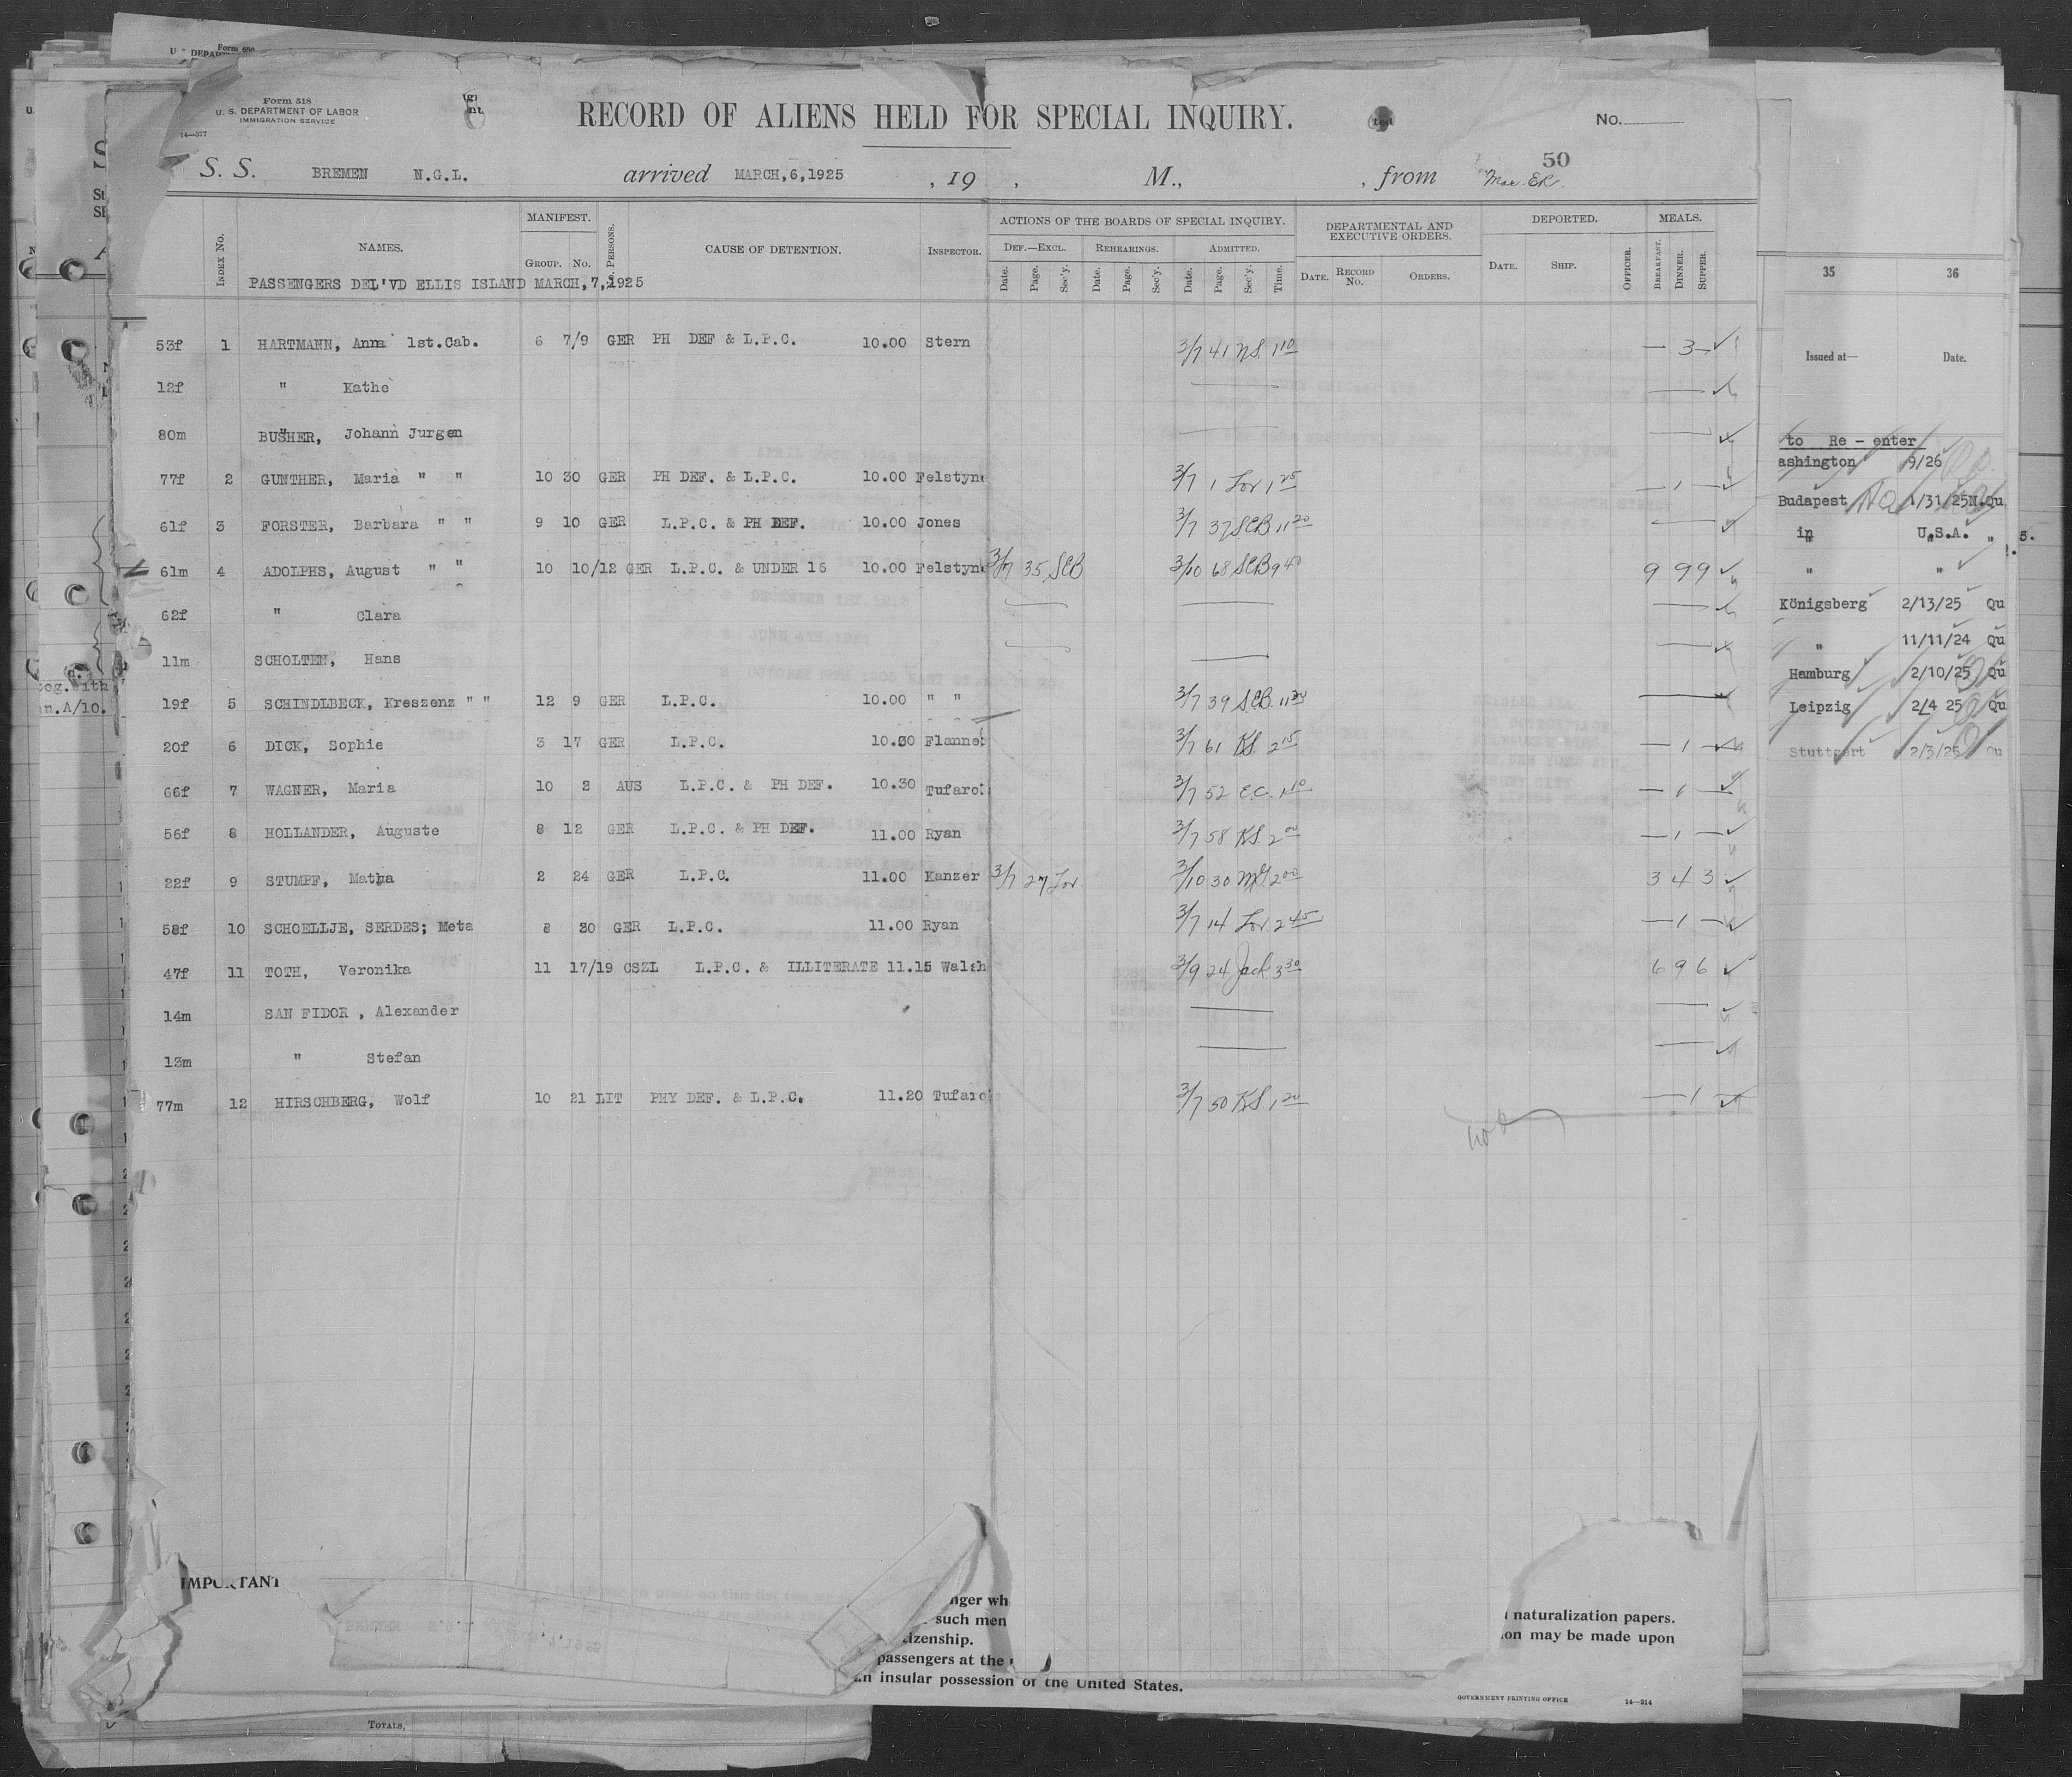 Form 518
U. S. DEPARTMENT OF LABOR
IMMIGRATION SERVICE
14—377
RECORD OF ALIENS HELD FOR SPECIAL INQUIRY.
No.
50
S. S. BREMEN N.G.L. arrived MARCH,6,1925 , 19 , M., , from Mar. ER.
Index No. NAMES. MANIFEST. Group. No. No. Persons. CAUSE OF DETENTION. INSPECTOR. ACTIONS OF THE BOARDS OF SPECIAL INQUIRY. DEPARTMENTAL AND EXECUTIVE ORDERS. DEPORTED. MEALS.
Def.—Excl. Rehearings. Admitted.
Date. Page. Sec'y. Date. Page. Sec'y. Date. Page. Sec'y. Time. Date. Record No. Orders. Date. Ship. Officer. Breakfast. Dinner. Supper.
PASSENGERS DEL'VD ELLIS ISLAND MARCH,7,1925
53f 1 HARTMANN, Anna 1st.Cab. 6 7/9 GER PH DEF & L.P.C. 10.00 Stern 3/7 41 NS. 1 10 — 3 —
12f " Kathe
80m BUSHER, Johann Jurgen
77f 2 GUNTHER, Maria " " 10 30 GER PH DEF. & L.P.C. 10.00 Felstyne 3/7 1 Lor 1 25 — 1 —
61f 3 FORSTER, Barbara " " 9 10 GER L.P.C. & PH DEF. 10.00 Jones 3/7 37 SEB 11 20
61m 4 ADOLPHS, August " " 10 10/12 GER L.P.C. & UNDER 16 10.00 Felstyne 3/7 35 SEB 3/10 68 SEB 9 40 9 9 9
62f " Clara
11m SCHOLTEN, Hans
19f 5 SCHINDLBECK, Kreszenz " " 12 9 GER L.P.C. 10.00 " " 3/7 39 SEB. 11 30
20f 6 DICK, Sophie 3 17 GER L.P.C. 10.30 Flanne 3/7 61 KS. 2 15 — 1 —
66f 7 WAGNER, Maria 10 2 AUS L.P.C. & PH DEF. 10.30 Tufaro 3/7 52 E.C. 1 10 — 1 —
56f 8 HOLLANDER, Auguste 8 12 GER L.P.C. & PH DEF. 11.00 Ryan 3/7 58 KS. 2 00 — 1 —
22f 9 STUMPF, Matha 2 24 GER L.P.C. 11.00 Kanzer 3/7 27 Lor. 3/10 30 2 00 3 4 3
58f 10 SCHOELLJE, SERDES; Meta 8 30 GER L.P.C. 11.00 Ryan 3/7 14 Lor. 2 45 — 1 —
47f 11 TOTH, Veronika 11 17/19 CSZL L.P.C. & ILLITERATE 11.15 Walsh 3/9 24 Jack 3 30 6 9 6
14m SAN FIDOR , Alexander
13m " Stefan
77m 12 HIRSCHBERG, Wolf 10 21 LIT PHY DEF. & L.P.C. 11.20 Tufaro 3/7 50 KS 1 20 — 1
35 36
Issued at— Date.
to Re - enter
ashington 9/26
Budapest 1/31/25 N.Qu
in U.S.A. "
" "
Königsberg 2/13/25 Qu
" 11/11/24 Qu
Hamburg 2/10/25 Qu
Leipzig 2/4 25 Qu
Stuttgart 2/3/25 Qu
og.with
n.A/10.
IMPORTANT
nger wh
such men
izenship.
passengers at the
an insular possession of the United States.
naturalization papers.
on may be made upon
GOVERNMENT PRINTING OFFICE 14—214
Totals,